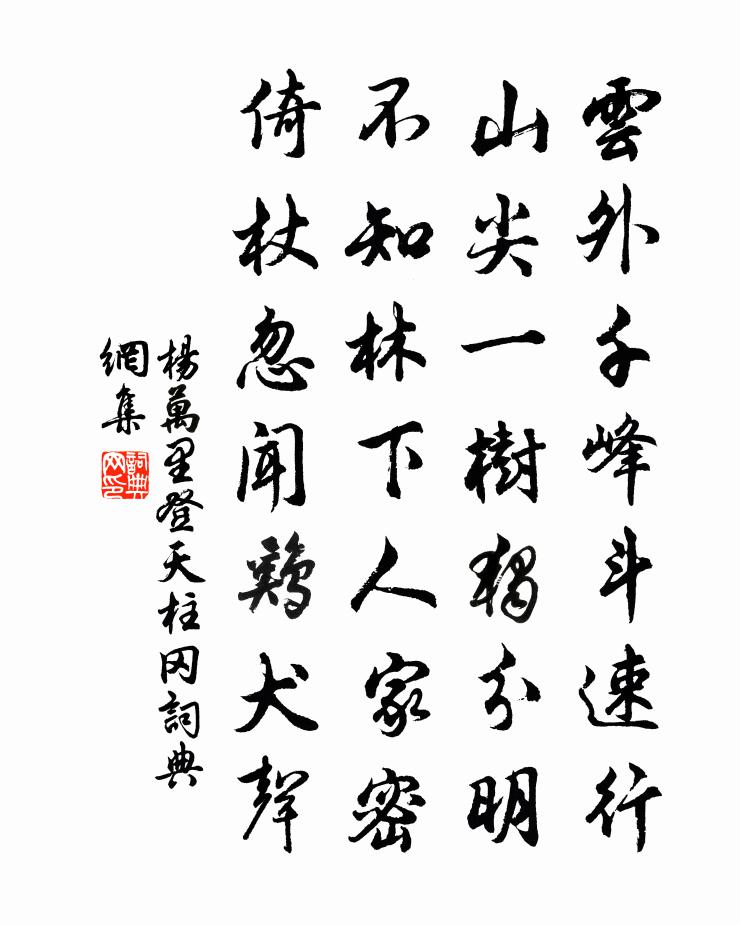 雲外千峰斗速行
山尖一樹獨分明
不知林下人家密
倚杖忽聞鷄犬聲
楊萬里登天柱岡詞典
網集
詞典網印